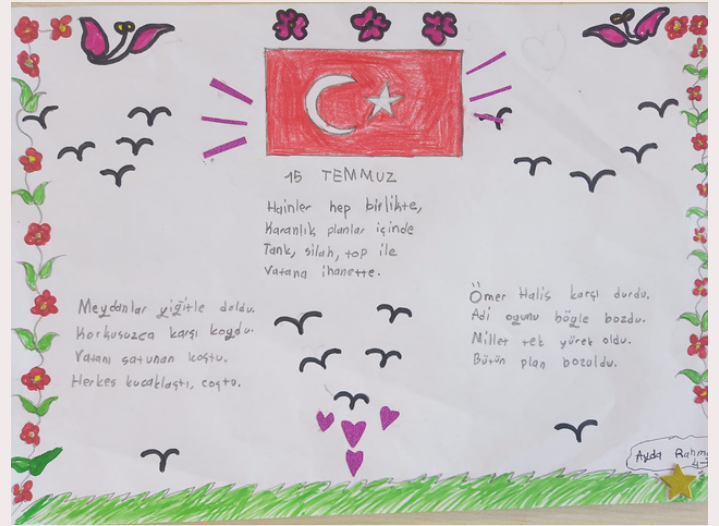 15 TEMMUZ
Hainler hep birlikte,
Karanlık planlar içinde
Tank, silah, top ile
Vatana ihanette.
Meydanlar yiğitle doldu.
Korkusuzca karşı koydu.
Vatanı satunan koştu.
Herkes kucaklaştı, coştu.
Ömer Halis karşı durdu.
Adi oyunu böyle bozdu.
Millet tek yürek oldu.
Bütün plan bozuldu.
Ayda Rahm